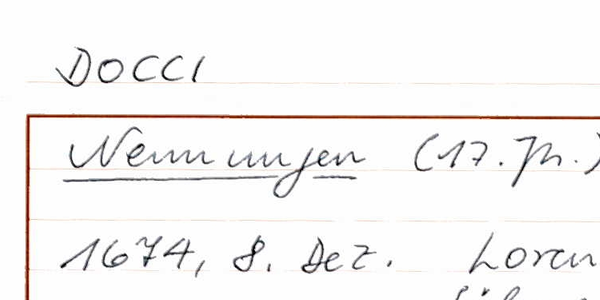 DOCCI
Nennungen (17. Jh.)
1674, 8. Dez. Loren